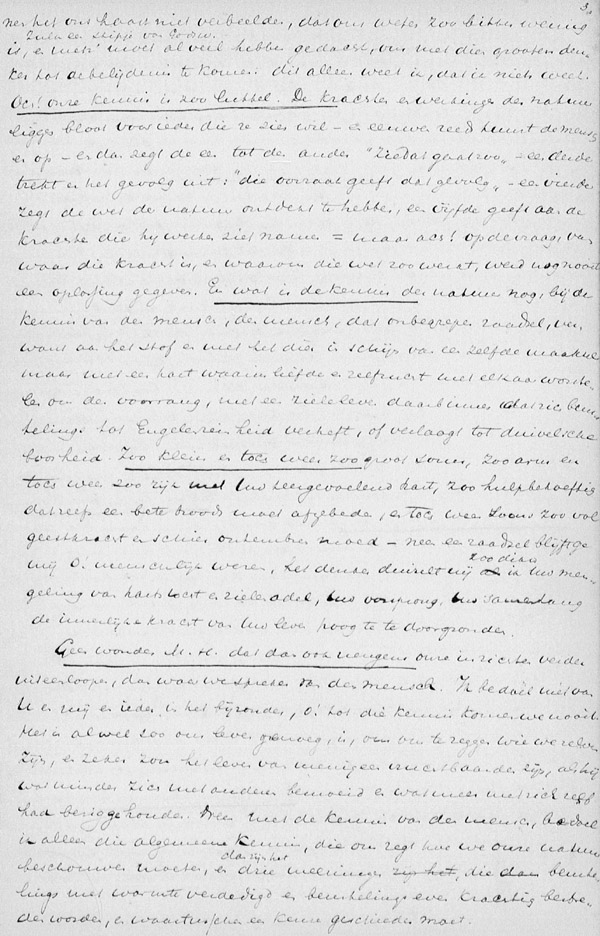 3.
men het ons haast niet verbeelden, dat ons weten zoo bitter weinig
is, en moet al veel hebben gedacht, om met dien grooten den-
ker tot de belijdenis te komen: dit alleen weet ik, dat ik niets weet.
Och! onze kennis is zoo luttel. De krachten en werkingen der natuur
liggen bloot voor ieder die ze zien wil – en eeuwen reeds tuurt de mensch
er op – en dan zegt de een tot den ander "Zie dat gaat zoo" – een derde
trekt er het gevolg uit: "die oorzaak geeft dat gevolg" – een vierde
zegt de wet der natuur ontdekt te hebben, een vijfde geeft aan de
krachten die hij werken ziet namen = maar ach! op de vraag van
waar die kracht is, en waarom die wet zoo werkt, werd nog nooit
een oplossing gegeven. En wat is de kennis der natuur nog, bij de
kennis van den mensch, den mensch, dat onbegrepen raadsel, ver-
want aan het stof en met het dier in schijn van een zelfde maaksel
maar met een hart waarin liefde en zelfzucht met elkaar worste-
len om den voorrang, met een zieleleven daarbinnen dat zich beurte-
lings tot Engelenreinheid verheft, of verlaagt tot duivelsche
boosheid. Zoo klein en toch weer zoo groot soms, zoo arm en
toch weer zoo rijk met Uw teergevoelend hart, zoo hulpbehoeftig
dat zelfs een bete broods moet afgebeden, en toch weer soms zoo vol
geestkracht en schier ontembren moed – neen een raadsel blijft ge
mij O! menschelijk wezen, het denken duizelt mij zoodra ik Uw men-
geling van hartstocht en zieleadel, Uw oorsprong, Uw samenhang
de innerlijke kracht van Uw leven poog te doorgronden.
Geen wonder M. H. dat dan ook nergens onze inzichten verder
uiteenloopen, dan waar we spreken van den mensch. Ik bedoel niet van
U en mij en ieder in het bijzonder, O! tot die kennis komen we nooit.
Het is al wel zoo ons leven genoeg is, om ons te zeggen wie we zelven
zijn, en zeker zou het leven van menigeen vruchtbaarder zijn, als hij
wat minder zich met anderen bemoeid en wat meer met zich zelf
had bezig gehouden. Neen met de kennis van den mensch, bedoel
ik alleen die algemeene kennis, die ons zegt hoe we onze natuur
beschouwen moeten, en drie meeningen dan zijn het, die dan beurte-
lings met warmte verdedigd en beurtelings even krachtig bestre-
den worden, en waartusschen een keuze geschieden moet.